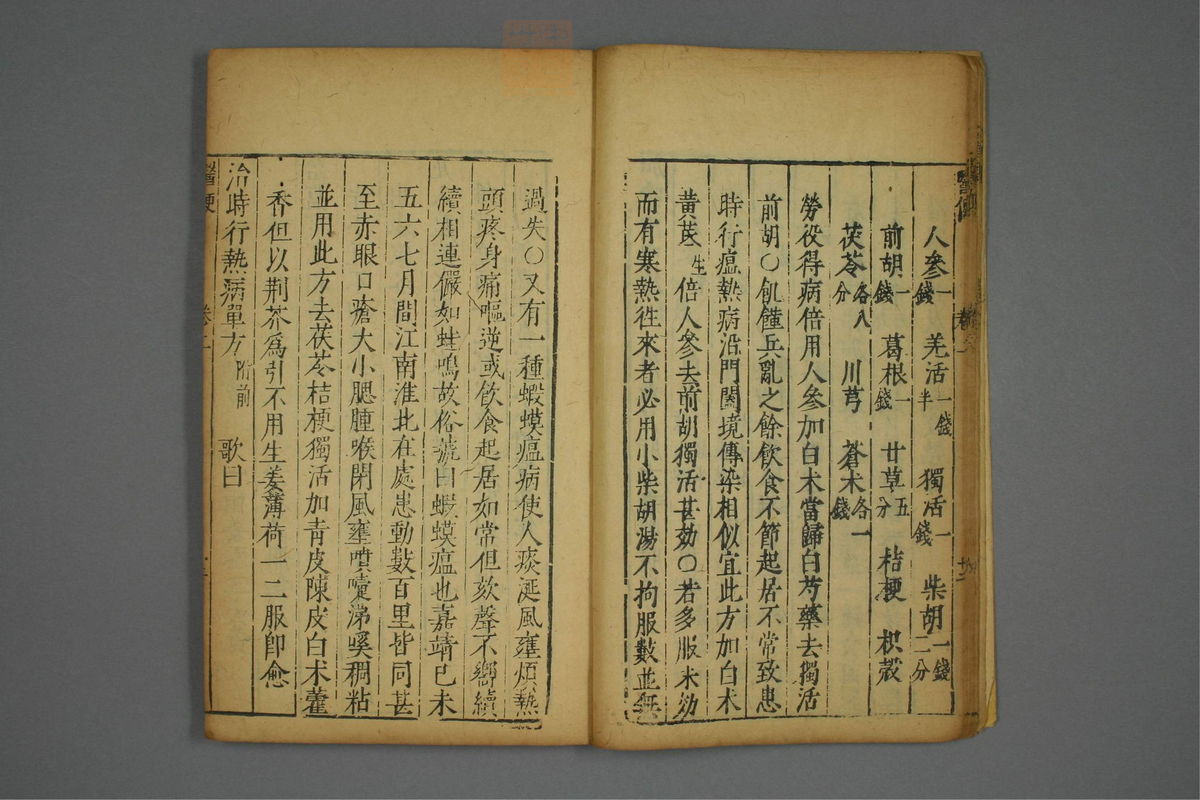 人參一錢 羌活一錢半 獨活一錢 柴胡一錢二分
前胡一錢 葛根一錢 甘草五分 桔梗 枳殼
茯苓各八分 川芎 蒼术各一錢
勞役得病倍用人參加白术當歸白芍藥去獨活
前胡〇飢饉兵亂之餘飲食不節起居不常致患
時行瘟熱病沿門闔境傳染相似宜此方加白术
黃芪生倍人參去前胡獨活甚効〇若多服未効
而有寒熱徃來者必用小柴胡湯不拘服數並無
過失〇又有一種蝦蟆瘟病使人痰涎風壅煩熱
頭疼身痛嘔逆或飲食起居如常但欬聲不響續
續相連儼如蛙鳴故俗號曰蝦蟆瘟也嘉靖己未
五六七月間江南淮北在處患動數百里皆同甚
至赤眼口瘡大小腮腫喉閉風壅噴嚏涕唾稠粘
並用此方去茯苓桔梗獨活加青皮陳皮白术藿
香但以荆芥為引不用生姜薄荷一二服卽愈
治時行熱病單方附前 歌曰
醫便 卷二